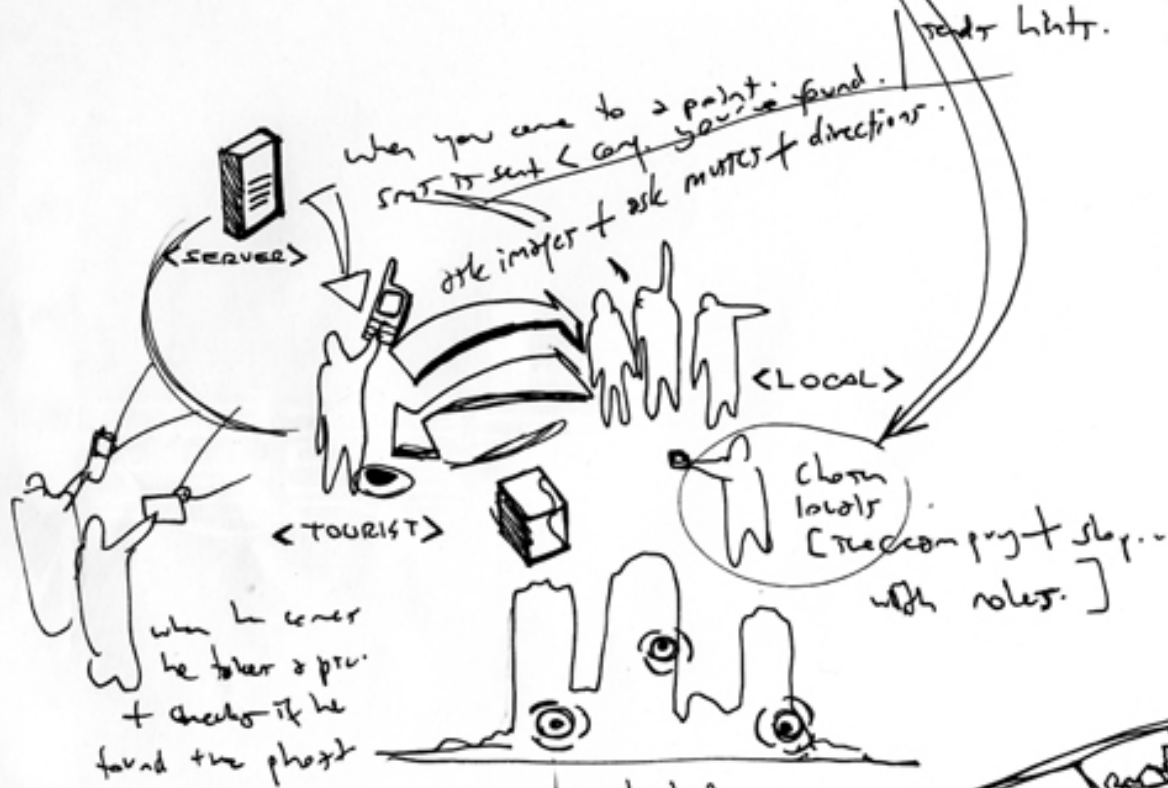 sends hints.
when you come to a point.
sms is sent < cong. you've found.
ask images + ask mustes + directions.
<SERVER>
<LOCAL>
<TOURIST>
chosen
locals
[the company + shop...
with roles.]
when he comes
he takes a pic.
+ checks if he
found the ghost